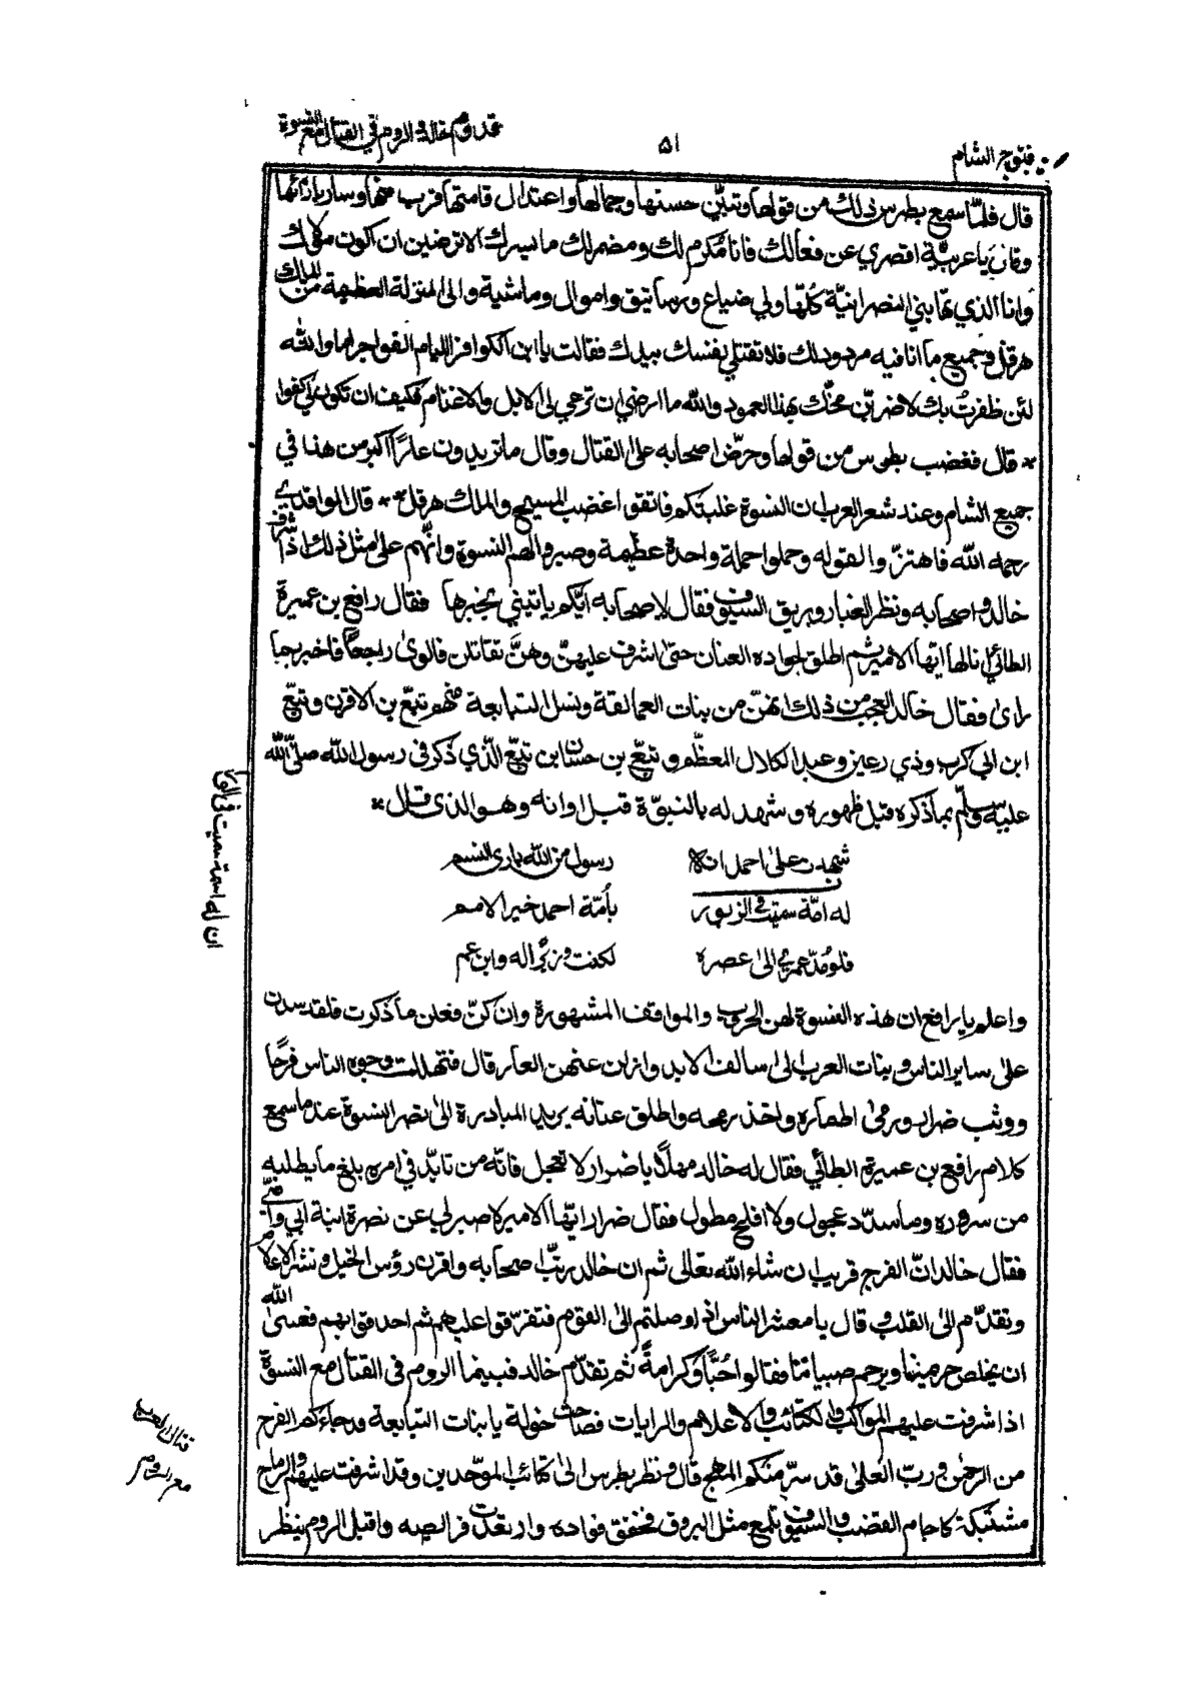 فتوح الشام
٥١
قدوم خالد و الروم في القتال مع النسوة
قال فلمّا سمع بطرس ذلك من قولها وتبيّن حسنها وجمالها واعتدال قامتها قرب منها وسار بازائها
وقال يا عربيّة اقصري عن فعالك فانا مُكرم لك ومضمر لك ما يسرك الا ترضين ان اكون مولاك
وانا الذي تهابني النصرانيّة كلّها ولي ضياع وبساتيق واموال وماشية والى المنزلة العظيمة من الملك
هرقل وجميع ما انا فيه مردود لك فلا تقتلي نفسك بيدك فقالت يا ابن الكوافر الليام القواجر اما والله
لئن ظفرتُ بك لاضربنّ مخّك بهذا العمود والله ما ارضى ان ترعي لي الابل والاغنام فكيف ان تكون لي كفوا
* قال فغضب بطرس من قولها وحرّض اصحابه على القتال وقال ما تريدون عارًا اكبر من هذا في
جميع الشام وعند شعر العرب ان النسوة غلبتكم فاتقوا غضب المسيح والملك هرقل ** قال الواقدي
رحمه الله فاهتزّ والقوله وحملوا حملة واحدة عظيمة وصبر والهم النسوة وانّهم على مثل ذلك اذ اشرف
خالد واصحابه ونظر الغبار وبريق السيوف فقال لاصحابه ايّكم ياتيني بخبرها فقال رافع بن عميرة
الطائي انا لها ايها الامير ثم اطلق لجواده العنان حتى اشرف عليهنّ وهنّ تقاتلن فالوى راجعًا فاخبر بما
راى فقال خالد العجب من ذلك انهنّ من بنات العمالقة ونسل التبابعة منهم تبّع بن الاقرن وتبّع
ابن ابي كرب وذي رعين وعبد الكلال المعظّم وتبّع بن حسان ابن تبّع الّذي ذكر في رسول الله صلّى الله
عليه وسلّم بما ذكره قبل ظهوره وشهد له بالنبوّة قبل اوانه وهو الذي قال *
شهدت على احمد انه رسول من الله باري النسم
له امّة سميت في الزبور بأمّة احمد خير الامم
فلو مُدّ عمري الى عصره لكنت وزيرًا له وابن عم
واعلم يا رافع ان هذه النسوة لهن الحروب والمواقف المشهورة وان كنّ فعلن ما ذكرت فلقد سدن
على ساير الناس وبنات العرب الى سالف الابد وازلن عنهن العار قال فتهللت وجوه الناس فرحًا
ووثب ضرار ورمى اطماره واخذ رمحه واطلق عنانه يريد المبادرة الى نصر النسوة عند ما سمع
كلام رافع بن عميرة الطائي فقال له خالد مهلًا يا ضرار لا تعجل فانّه من تابّد في امره بلغ ما يطلبه
من سروره وما سدّد عجول ولا افلح مطول فقال ضرار ايّها الامير لا صبر لي عن نصرة ابنة ابي وامّي
فقال خالد انّ الفرج قريب ان شاء الله تعالى ثم ان خالد رتّب اصحابه واقرن رؤس الخيل ونشر الاعلام
وتقدّم الى القلب و قال يا معشر الناس اذا وصلتم الى القوم فتفرّقوا عليهم ثم احدقوا بهم فعسى الله
ان يخلص حريمنا ويرحم صبياننا فقالوا حُبًّا وكرامةً ثم تقدّم خالد فبينما الروم في القتال مع النسوة
اذا شرفت عليهم المواكب والكتائب والاعلام والرايات فصاحت خولة يا بنات التبابعة قد جاءكم الفرج
من الرحمن ورب العلى قد سرّ منكم المهج قال ونظر بطرس الى كتائب الموحّدين وقد اشرفت عليهم والرماح
مشتبكة كاجام القضب والسيوف تلمع مثل البروق فخفق فواده وارتعدت فرايصه واقبل الروم ينظر
ان له اسمة سميت في
قتال العرب
مع الروم